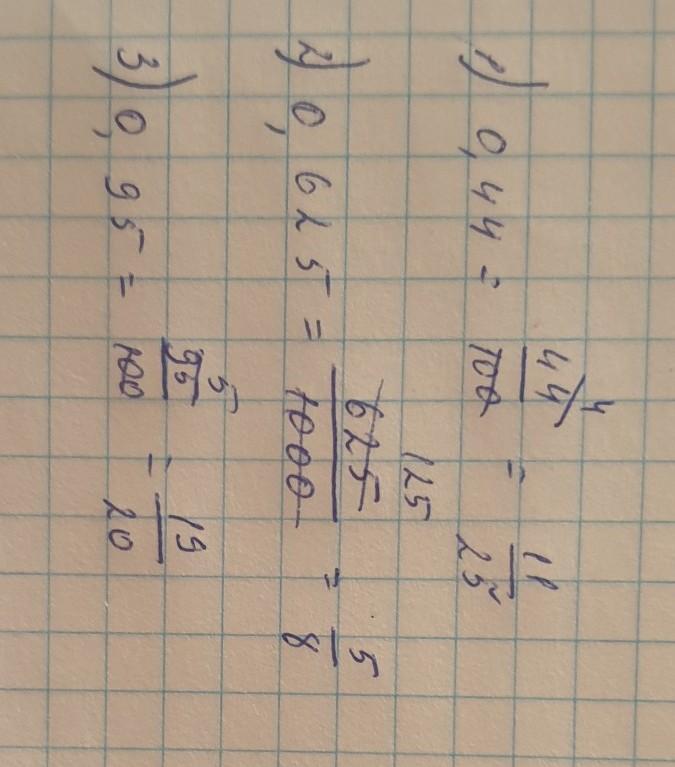 1) 0,44 = 44/100 4 = 11/25
2) 0,625 = 625/1000 125 = 5/8
3) 0,95 = 95/100 5 = 19/20